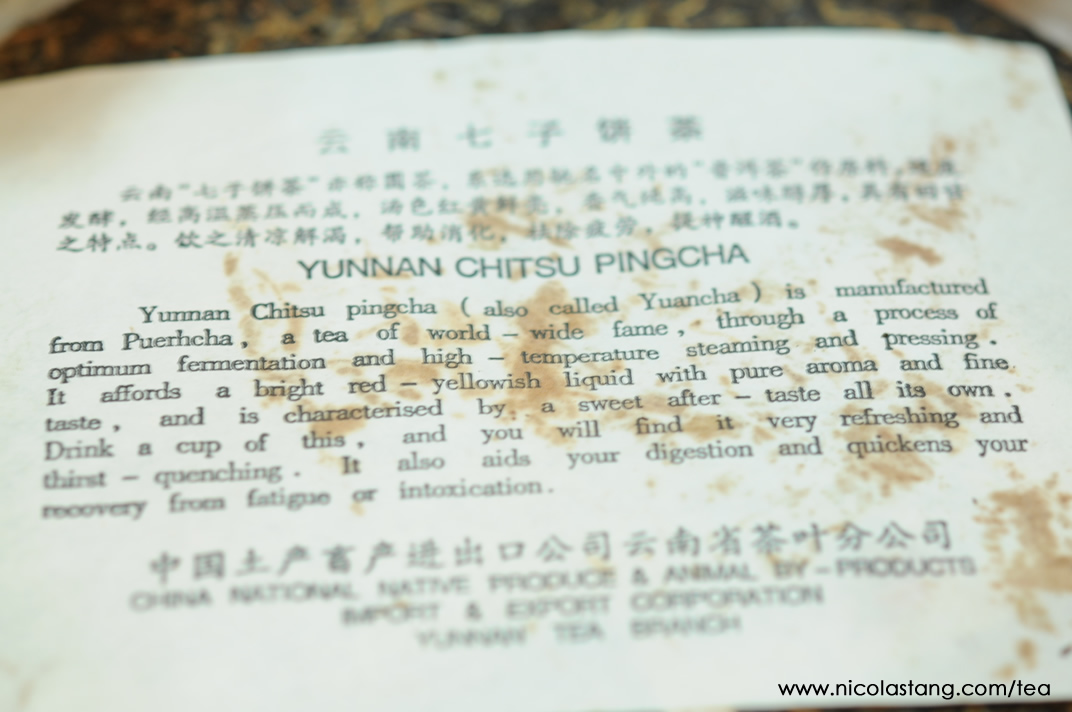 云南七子饼茶
云南“七子饼茶”亦称圆茶，系选驰名中外的“普洱茶”作原料，
发酵，经高温蒸压而成，汤色红黄鲜亮，香气纯高，滋味醇厚，具有回甘
之特点。饮之清凉解渴，帮助消化，祛除疲劳，提神醒酒。
YUNNAN CHITSU PINGCHA
Yunnan Chitsu pingcha ( also called Yuancha ) is manufactured
from Puerhcha, a tea of world - wide fame, through a process of
optimum fermentation and high - temperature steaming and pressing.
It affords a bright red - yellowish liquid with pure aroma and fine
taste, and is characterised by a sweet after - taste all its own.
Drink a cup of this, and you will find it very refreshing and
thirst - quenching. It also aids your digestion and quickens your
recovery from fatigue or intoxication.
中国土产畜产进出口公司云南省茶叶分公司
CHINA NATIONAL NATIVE PRODUCE & ANIMAL BY-PRODUCTS
IMPORT & EXPORT CORPORATION
YUNNAN TEA BRANCH
www.nicolastang.com/tea